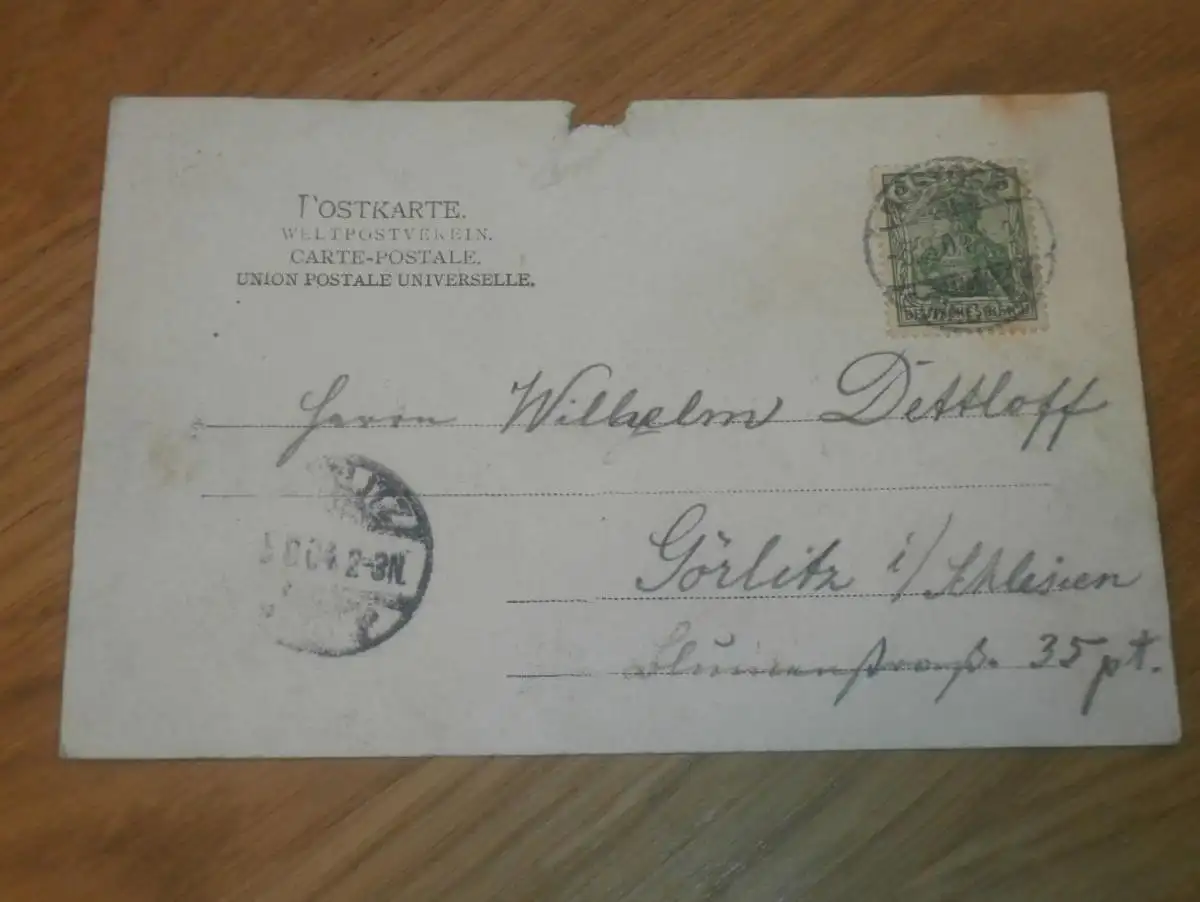 POSTKARTE.
WELTPOSTVEREIN.
CARTE-POSTALE.
UNION POSTALE UNIVERSELLE.
5 5
DEUTSCHES REICH
Herrn Wilhelm Dettloff
2-3N.
Görlitz i/Schlesien
Blumenstraß. 35 pt.